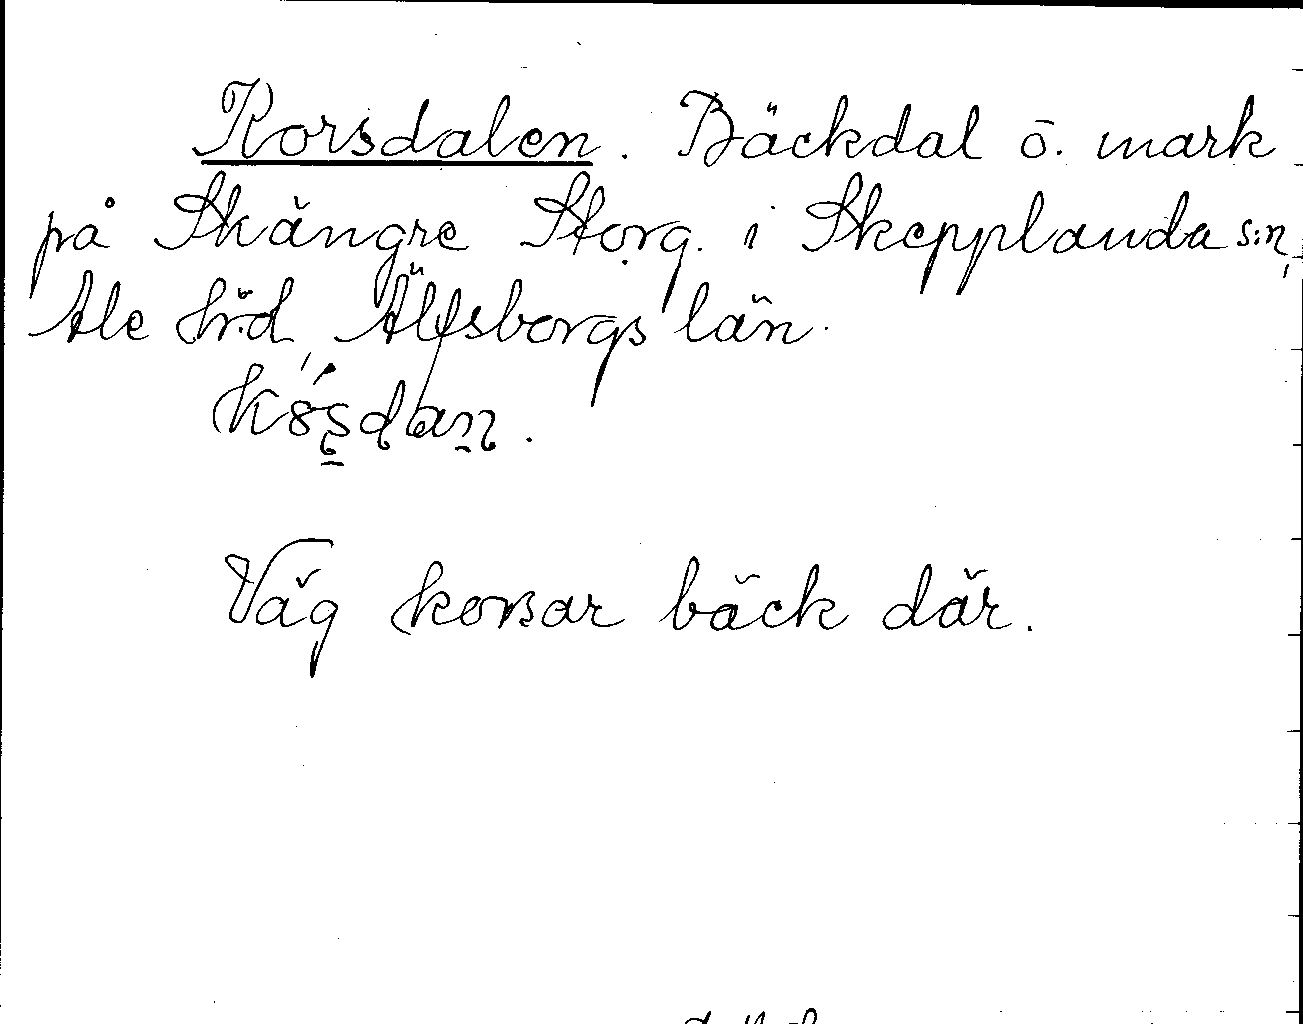 Korsdalen. Bäckdal o. mark
på Skängre Storg. i Skepplanda s:n,
Ale h:d, Älfsborgs län.
Väg korsar bäck där.